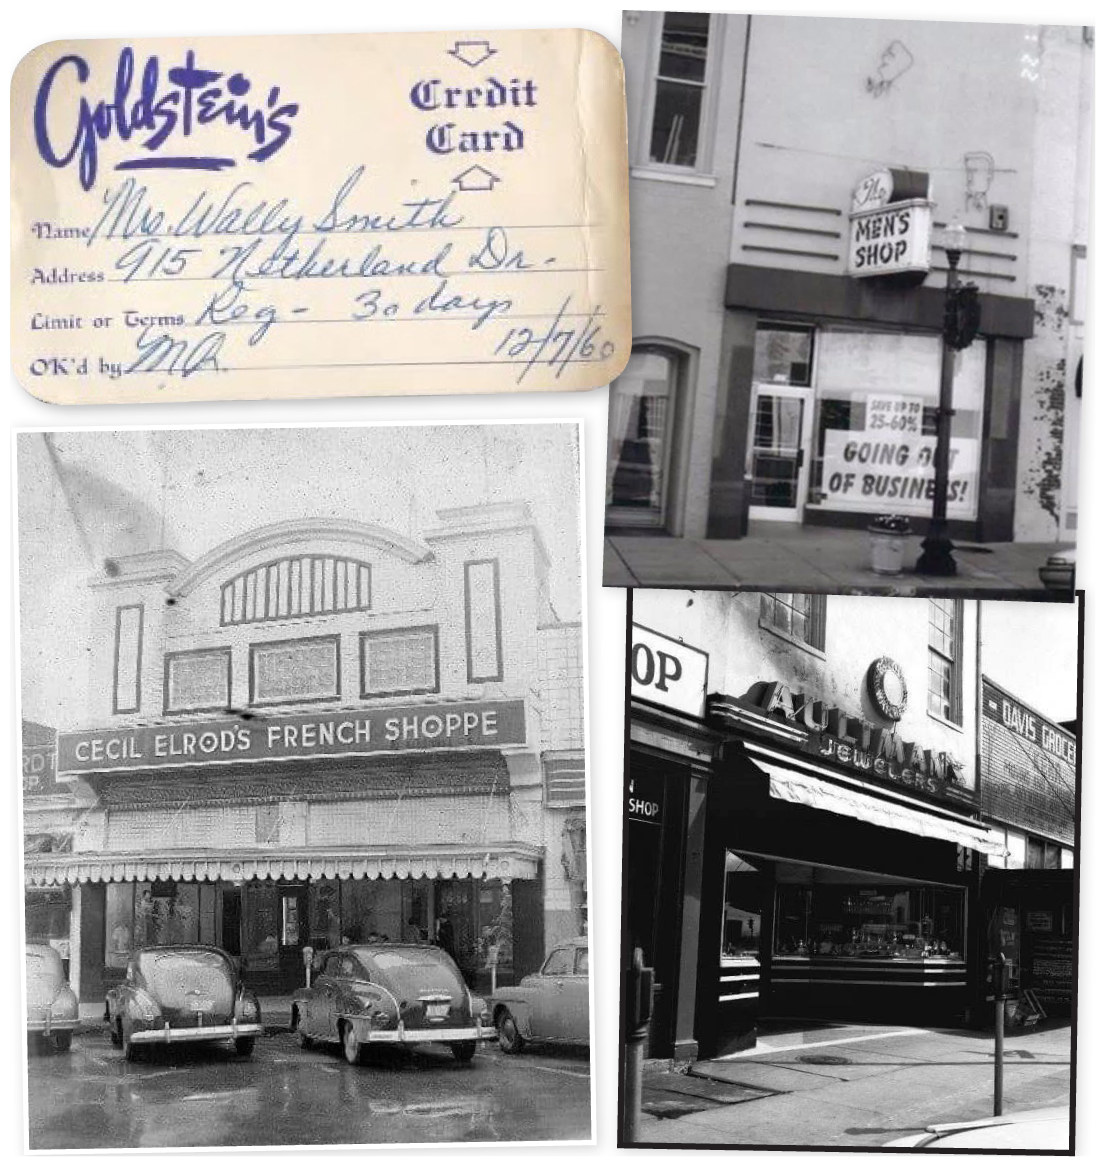 Goldstein's
Credit
Card
Name Mrs. Wally Smith
Address 915 Netherland Dr.
Limit or Terms Reg - 30 days
OK'd by MR. 12/7/60
The
MEN'S
SHOP
SAVE UP TO
25-60%
GOING OUT
OF BUSINESS!
CECIL ELROD'S FRENCH SHOPPE
OP
SHOP
AULTMAN
JEWELERS
DAVIS GROCE